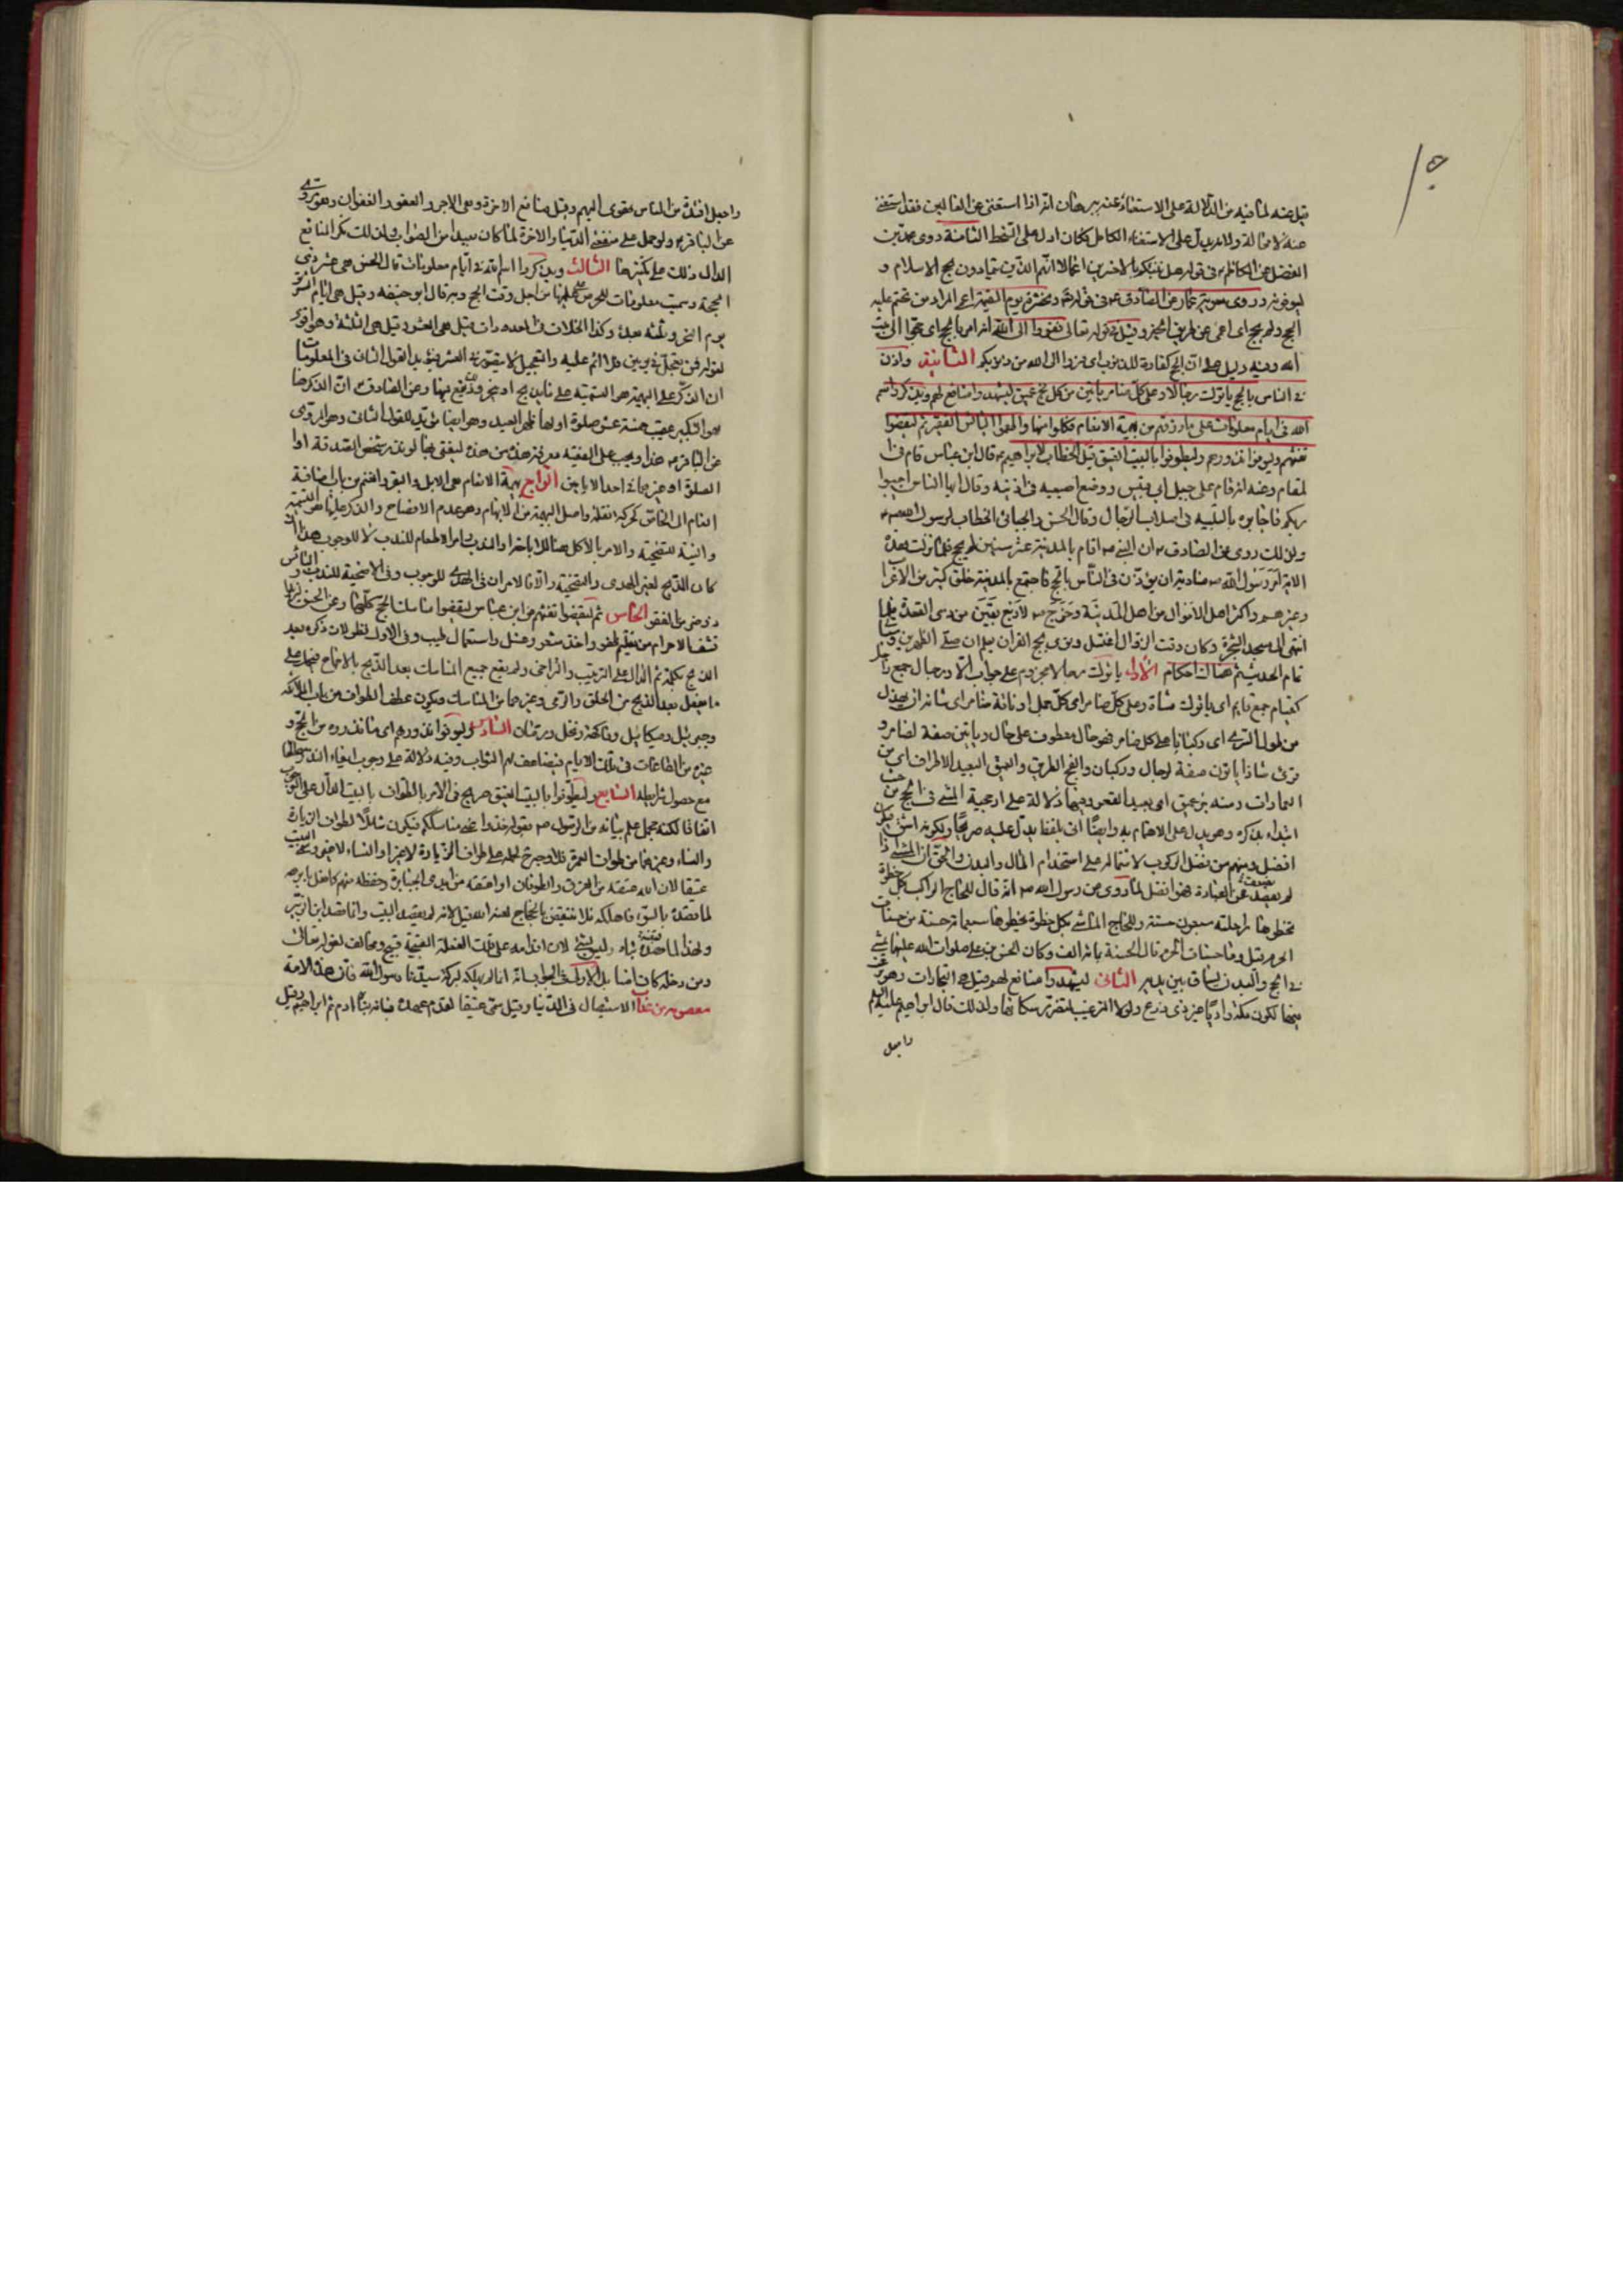 قبل عنه لما فيه من الدلالة على الاستغناء عنه ببرهان لانه اذا استغنى عن العالمين فقد استغنى
عنه لا محالة ولانه يدل على الاستغناء الكامل فكان ادل على السخط الثامنة روى محمد بن
الفضل عن الكاظم في قوله هل ننبئكم بالاخسرين اعمالا انهم الذين يتمادون بحج الاسلام و
يسوفونه وروى معوية بن عمار عن الصادق في قوله ونحشره يوم القيمة اعمى المراد من تحتم عليه
الحج ولم يحج اى اعمى عن طريق الخير وقيل في قوله تعالى ففروا الى الله انه امر بالحج اى حجوا الى بيت
الله وفيه دليل على ان الحج كفارة للذنوب اى فروا الى الله من ذنوبكم الثانية واذن
في الناس بالحج ياتوك رجالا وعلى كل ضامر ياتين من كل فج عميق ليشهدوا منافع لهم ويذكروا اسم
الله في ايام معلومات على ما رزقهم من بهيمة الانعام فكلوا منها واطعموا البائس الفقير ثم ليقضوا
تفثهم وليوفوا نذورهم وليطوفوا بالبيت العتيق قيل الخطاب لابراهيم قال ابن عباس قام في
المقام وعنه انه قام على جبل ابي قبيس ووضع اصبعيه في اذنيه وقال ايها الناس اجيبوا
ربكم فاجابوه بالتلبية في اصلاب الرجال وقال الحسن والجبائي الخطاب لرسول الله
ولذلك روى عن الصادق ان النبي اقام بالمدينة عشر سنين لم يحج فلما نزلت هذه
الاية امر رسول الله مناديه ان يؤذن في الناس بالحج فاجتمع بالمدينة خلق كثير من الاعراب
وغيرهم واكثر اهل الاموال من اهل المدينة وخرج لاربع بقين من ذى القعدة فلما
انتهى الى مسجد الشجرة وكان وقت الزوال اغتسل ونوى بحج القران بعد ان صلى الظهرين
تمام الحديث ثم هنا احكام الاول ياتوك رجالا مجزوم على جواب الامر ورجال جمع راجل
كقيام جمع قايم اى ياتوك مشاة وعلى كل ضامر اى كل جمل او ناقة ضامر اى شانه ان يهزل
من طول السرى اى ركبانا على كل ضامر فهو حال معطوف على حال وياتين صفة لضامر و
قرئ شاذا ياتون صفة لرجال وركبان والفج الطريق والعميق البعيد الاطراف اى من
العمارات ومنه بئر عميق اى بعيد القعر وفيها دلالة على ارجحية المشي في الحج من حيث
ابتداء بذكره وهو يدل على الاهتمام به وايضا اتى بلفظ يدل عليه صريحا ولكونه اشق فيكون
افضل ومنهم من فضل الركوب لاشتماله على استخدام المال والبدن والحق ان المشي اذا
لم يضعف عن العبادة فهو افضل لما روى عن رسول الله انه قال للحاج الراكب بكل خطوة
تخطوها راحلته سبعون حسنة وللحاج الماشي بكل خطوة يخطوها سبعمائة حسنة من حسنات
الحرم قيل وما حسنات الحرم قال الحسنة بمائة الف وكان الحسن بن علي صلوات الله عليهما يمشي
في الحج والبدن تساق بين يديه الثاني ليشهدوا منافع لهم قيل هي التجارات وهو
فيها لكون مكة واديا غير ذى زرع ولولا الترغيب لتضرر سكانها ولذلك قال ابراهيم عليه السلام
واجعل
واجعل افئدة من الناس تهوى اليهم وقيل منافع الاخرة وهي الاجر والعفو والغفران وهو مروى
عن الباقر ولو حمل على منفعة الدنيا والاخرة لما كان بعيدا من الصواب ولذلك نكر المنافع
الدال ذلك على تكثيرها الثالث ويذكروا اسم الله في ايام معلومات قال الحسن هي عشر ذى
الحجة وسميت معلومات للحرص على علمها من اجل وقت الحج وبه قال ابو حنيفه وقيل هي ايام التشريق
يوم النحر وثلثة بعده وكذا الخلاف في المعدودات فقيل هي العشر وقيل هي الثلثة وهو اقوى
لقوله فمن تعجل في يومين فلا اثم عليه والتعجيل لا يتصور في العشر فيؤيد القول الثاني في المعلومات
ان الذكر على البهيمة هو التسمية على ما يذبح او ينحر وذلك يقع فيها وعن الصادق ان الذكر هنا
هو التكبير عقيب خمسة عشر صلوة اولها ظهر العيد وهو ايضا مؤيد للقول الثاني وهو المروى
عن الباقر هذا ويجب على الفقيه معرفة هذه من هذه ليفتي بها لو نذر شخص الصدقة او
الصلوة او غيرهما في احد الايامين الرابع بهيمة الانعام هي الابل والبقر والغنم من باب اضافة
العام الى الخاص كحركة النقلة واصل البهيمة من الابهام وهو عدم الافصاح والذكر عليها هو التسمية
والنية للتضحية والامر بالاكل هنا للاباحة او الندب وامر الاطعام للندب لا للوجوب هذا ان
كان الذبح لغير الهدى والتضحية والا فالامران في الهدى للوجوب وفي الاضحية للندب والبائس
ذو ضر من الفقر الخامس ثم ليقضوا تفثهم عن ابن عباس ليقضوا مناسك الحج كلها وعن الحسن ليزيلوا
تشعث الاحرام من تقليم ظفر واخذ شعر وغسل واستعمال طيب وفي الاول نظر لان ذكره بعد
الذبح بكلمة ثم الدال على الترتيب والتراخي ولم يقع جميع المناسك بعد الذبح بالاجماع فيحمل على
ما يفعل بعد الذبح من الحلق والرمي وغيرهما من المناسك ويكون عطف الطواف من باب الملائكة
وجبرئيل وميكائيل وفاكهة ونخل ورمان السادس وليوفوا نذورهم اى ما نذروه من الحج و
غيره من الطاعات في تلك الايام فيضاعف لهم الثواب وفيه دلالة على وجوب ايفاء النذر مطلقا
مع حصول شرايطه السابع وليطوفوا بالبيت العتيق صريح في الامر بالطواف بالبيت الدال على الوجوب
اتفاقا لكنه مجمل علم بيانه من الرسول بقوله خذوا عنى مناسككم فيكون شاملا لطواف الزيارة
والنساء وغيرهما من طواف العمرة فلا وجه لحمله على طواف الزيارة لا غير او النساء لا غير وسمى البيت
عتيقا لان الله عتقه من الغرق والطوفان او اعتقه من ايدى الجبابرة وحفظه منهم كما فعل بابرهه
لما قصده بالسوء فاهلكه فلا ينتقض بالحجاج لعنه الله قيل لانه لم يقصد البيت وانما قصد ابن الزبير
ولهذا لما هدمه بناه وليس بشئ لان اقدامه على تلك الفعلة القبيحة قبيح ومخالف لقوله تعالى
ومن دخله كان امنا بل الاولى في الجواب انه انما لم يهلكه لبركة سيدنا رسول الله فان هذه الامة
معصومة من عذاب الاستيصال في الدنيا وقيل سمى عتيقا لقدم عهده فانه بناه ادم ثم ابراهيم وقيل